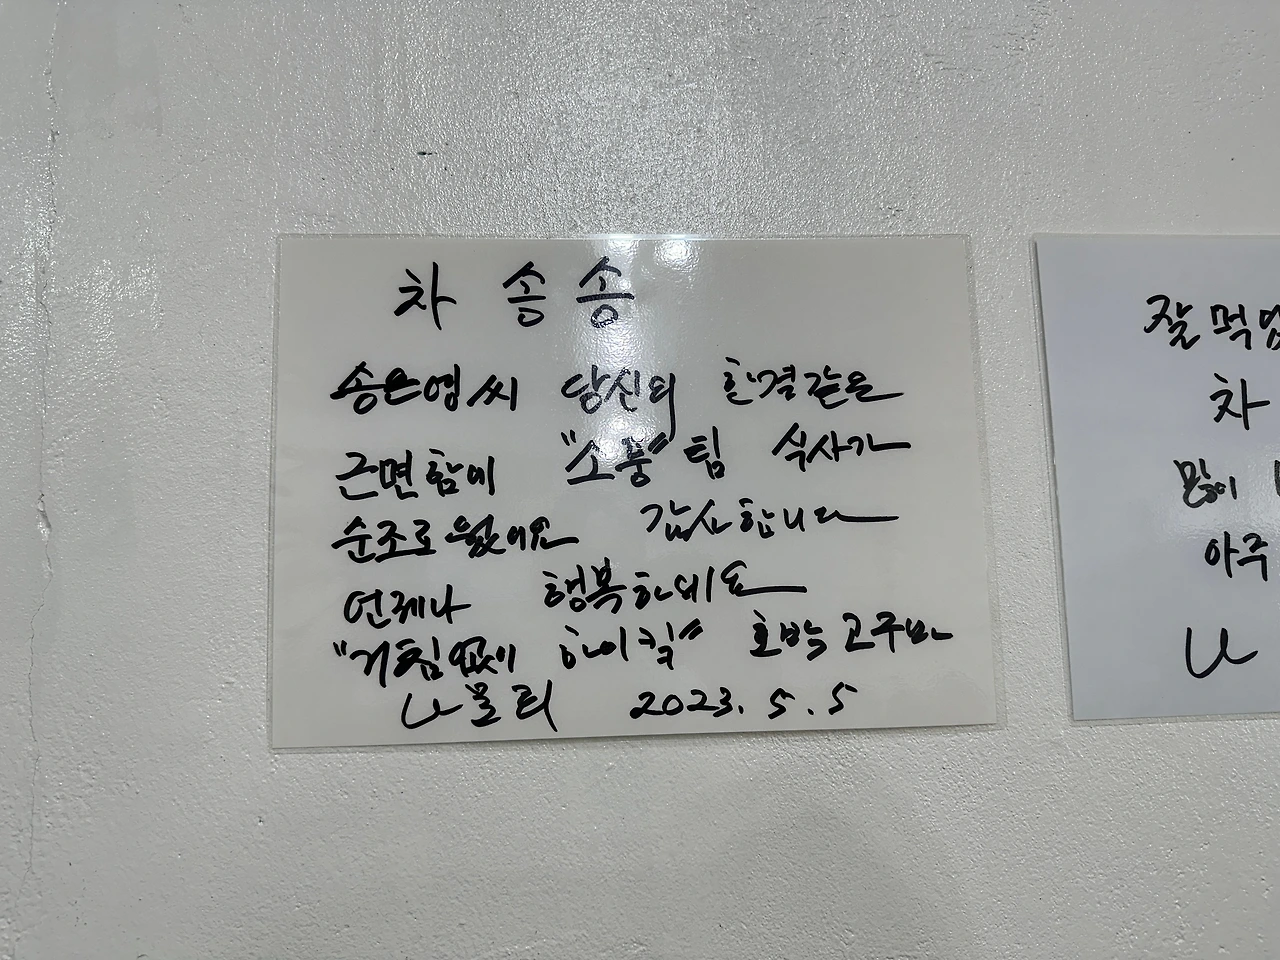 차 송송
송은영씨 당신의 한결같은
근면함에 "소풍" 팀 식사가
순조로웠어요 감사합니다
언제나 행복하세요
"거침없이 하이킥" 호박 고구마
나문희 2023. 5. 5
잘 먹었
차
많이
아주
나